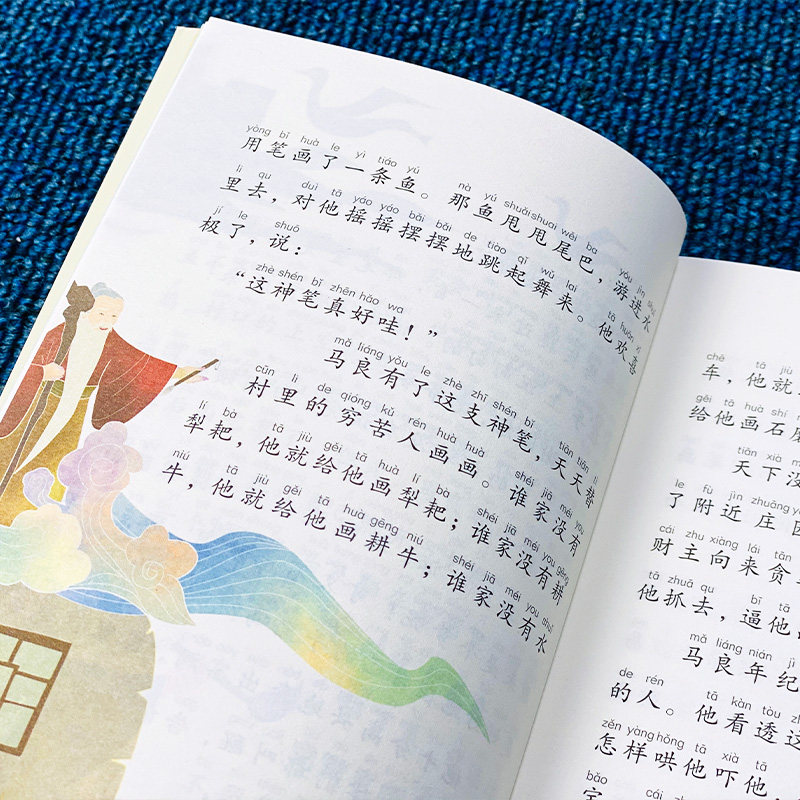 yòng bǐ huà le yì tiáo yú nà yú shuǎi shuai wěi ba yóu jìn
用笔画了一条鱼。那鱼甩甩尾巴，游进水
li qu duì tā yáo yáo bǎi bǎi de tiào qǐ wǔ lai tā huān xǐ
里去，对他摇摇摆摆地跳起舞来。他欢喜
jí le shuō
极了，说：
zhè shén bǐ zhēn hǎo wa
“这神笔真好哇！”
mǎ liáng yǒu le zhè zhī shén bǐ tiān tiān tì
马良有了这支神笔，天天替
cūn li de qióng kǔ rén huà huà shéi jiā méi yǒu
村里的穷苦人画画。谁家没有
lí bà tā jiù gěi tā huà lí bà shéi jiā méi you gēng
犁耙，他就给他画犁耙；谁家没有耕
niú tā jiù gěi tā huà gēng niú shéi jiā méi you shuǐ
牛，他就给他画耕牛；谁家没有水
chē tā jiù
车，他就
gěi tā huà shí
给他画石磨
tiān xià
天下没
le fù jìn zhuāng
了附近庄
cái zhu xiàng lái tān
财主向来贪
tā zhuā qu bī tā
他抓去，逼他
mǎ liáng nián jì
马良年纪
de rén tā kàn tòu
的人。他看透这
zěn yàng hǒng tā xià tā
怎样哄他吓他